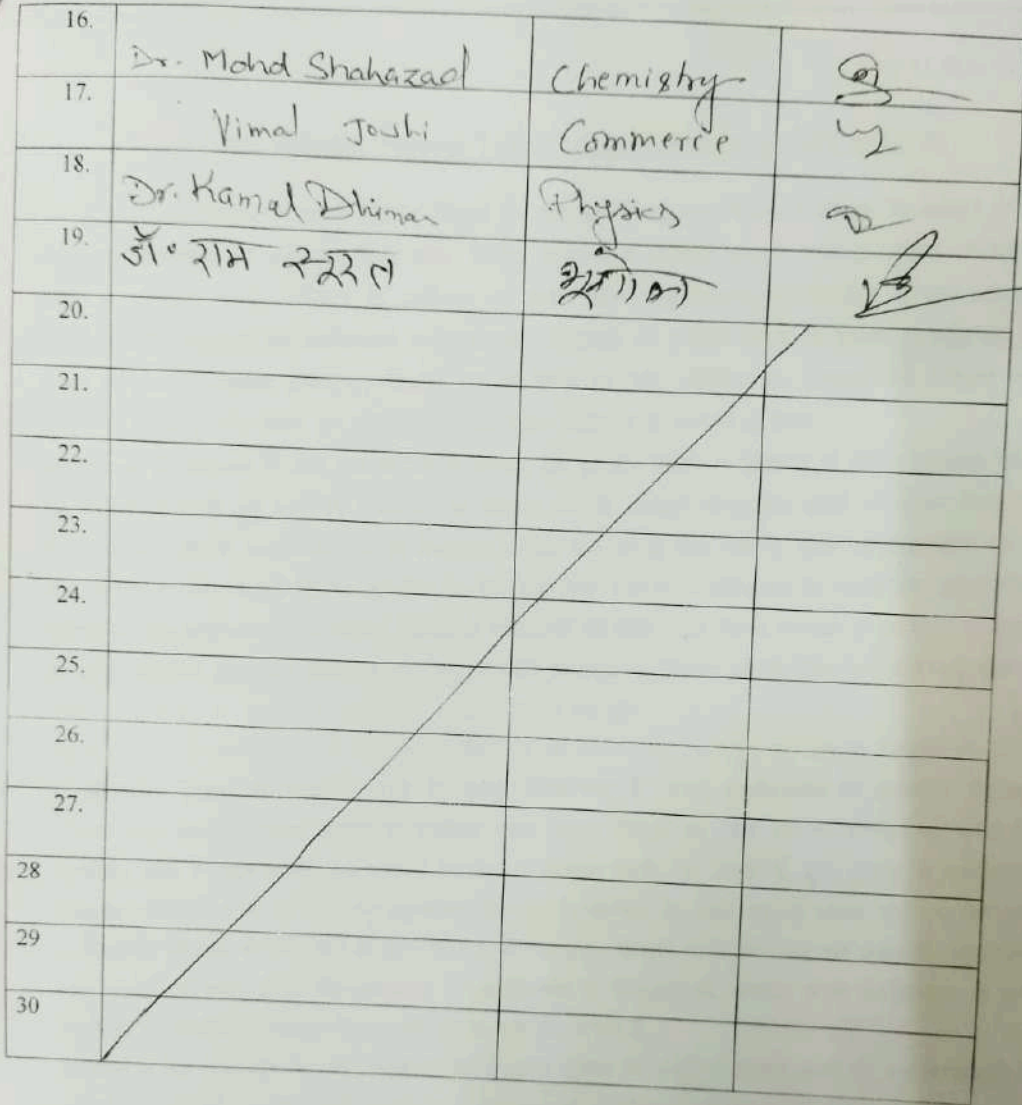 16. Dr. Mohd Shahazad Chemistry
17. Vimal Joshi Commerce
18. Dr. Kamal Dhiman Physics
19. डॉ॰ राम भूगोल
20.
21.
22.
23.
24.
25.
26.
27.
28
29
30